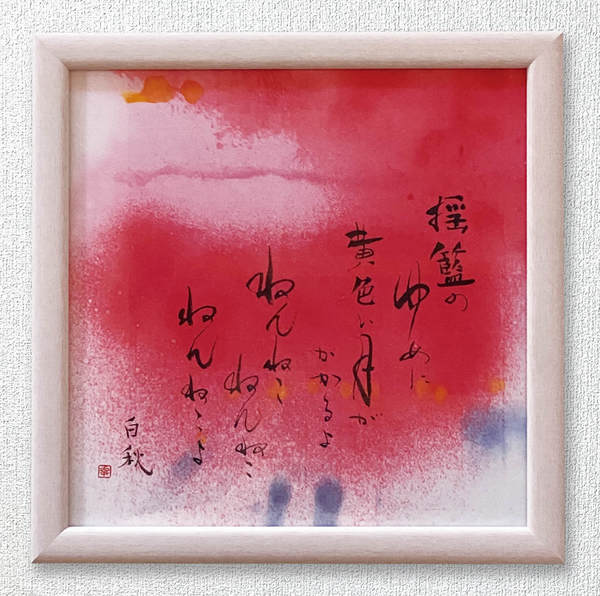 揺籃の
ゆめに
黄色い月が
かかるよ
ねんねこ
ねんねこ
ねんねこよ
白秋